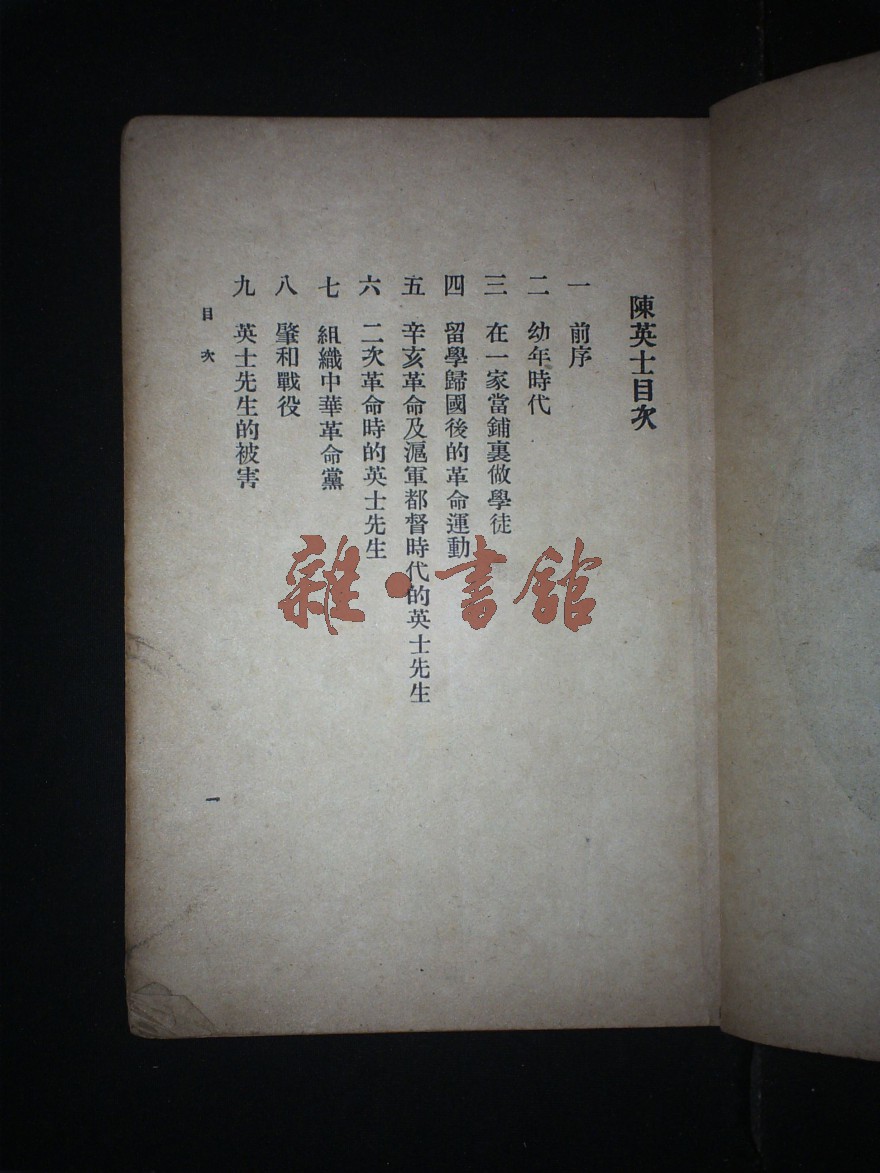 陳英士目次
一 前序
二 幼年時代
三 在一家當鋪裏做學徒
四 留學歸國後的革命運動
五 辛亥革命及滬軍都督時代的英士先生
六 二次革命時的英士先生
七 組織中華革命黨
八 肇和戰役
九 英士先生的被害
目次
一
雜·書館